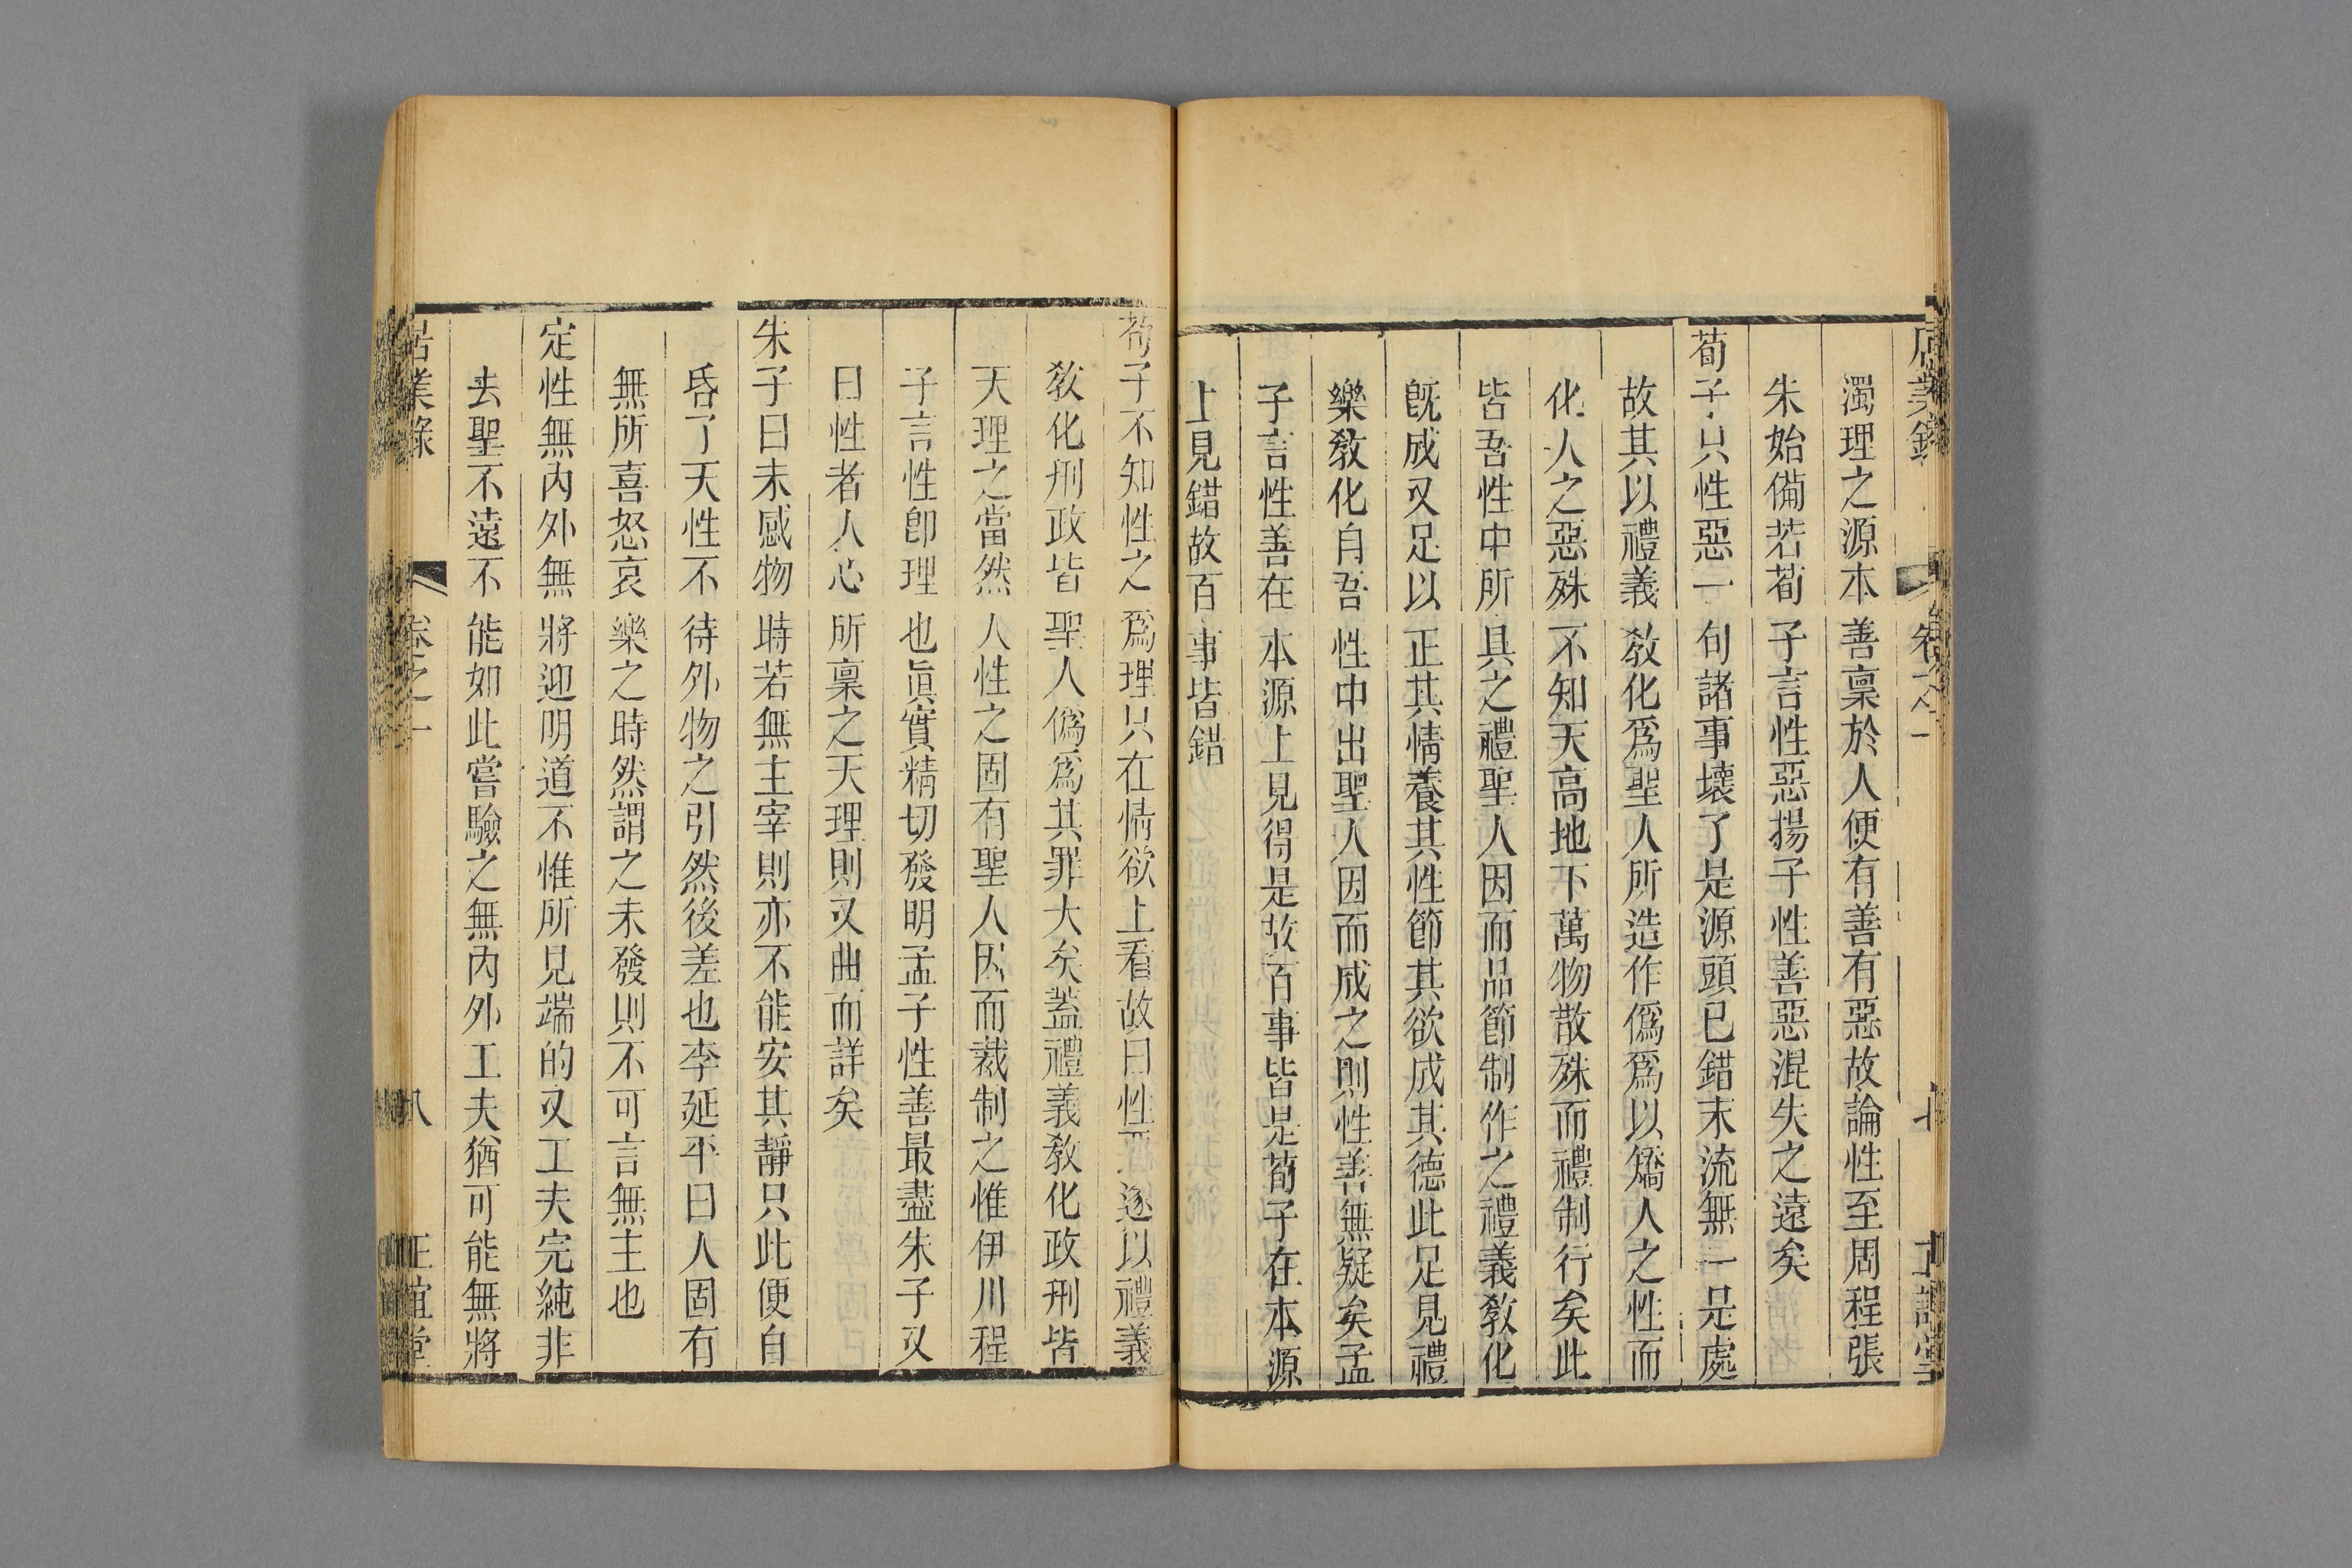 濁理之源本善稟於人便有善有惡故論性至周程張
朱始備若荀子言性惡揚子性善惡混失之遠矣
荀子只性惡一句諸事壞了是源頭已錯末流無一是處
故其以禮義教化爲聖人所造作僞爲以矯人之性而
化人之惡殊不知天高地下萬物散殊而禮制行矣此
皆吾性中所具之禮聖人因而品節制作之禮義教化
既成又足以正其情養其性節其欲成其德此足見禮
樂教化自吾性中出聖人因而成之則性善無疑矣孟
子言性善在本源上見得是故百事皆是荀子在本源
上見錯故百事皆錯
荀子不知性之爲理只在情欲上看故曰性惡遂以禮義
教化刑政皆聖人僞爲其罪大矣蓋禮義教化政刑皆
天理之當然人性之固有聖人因而裁制之惟伊川程
子言性卽理也眞實精切發明孟子性善最盡朱子又
曰性者人心所稟之天理則又曲而詳矣
朱子曰未感物時若無主宰則亦不能安其靜只此便自
昏了天性不待外物之引然後差也李延平曰人固有
無所喜怒哀樂之時然謂之未發則不可言無主也
定性無內外無將迎明道不惟所見端的又工夫完純非
去聖不遠不能如此嘗驗之無內外工夫猶可能無將
居業錄 卷之一 八 正誼堂